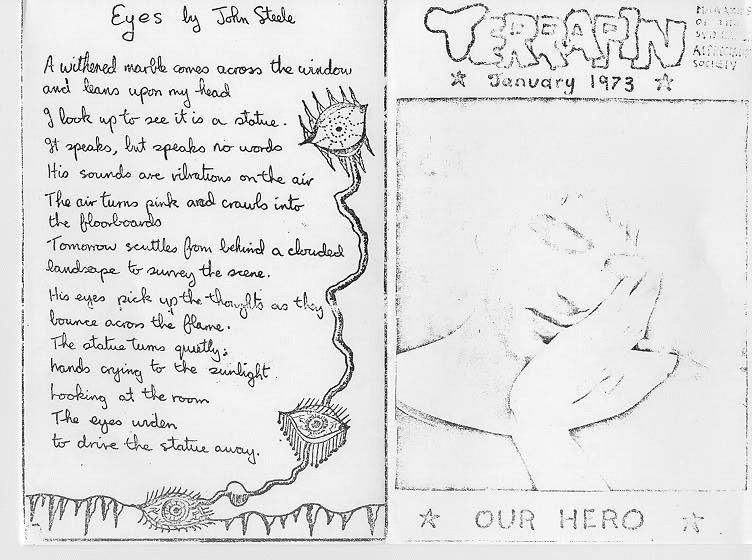 Eyes by John Steele
A withered marble comes across the window
and leans upon my head
I look up to see it is a statue.
It speaks, but speaks no words
His sounds are vibrations on the air
The air turns pink and crawls into
the floorboards
Tomorrow scuttles from behind a clouded
landscape to survey the scene.
His eyes pick up the thoughts as they
bounce across the flame.
The statue turns quietly;
hands crying to the sunlight.
Looking at the room
The eyes widen
to drive the statue away.
TERRAPIN
MAGAZINE
OF THE
SYD
APPRECIATION
SOCIETY
January 1973
OUR HERO